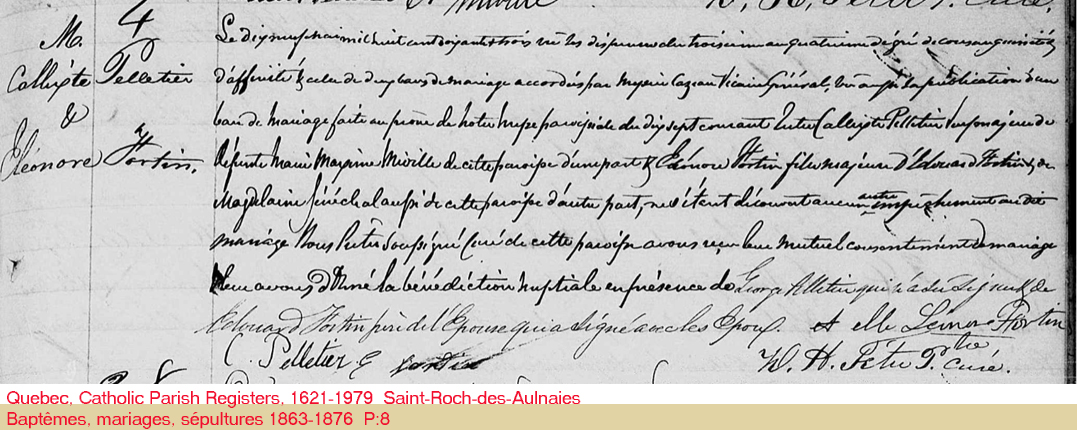 4
M.
Callixte Pelletier
&
Eléonore Fortin.
Le dix neuf mai mil huit cent soixante trois vu les dispenses du troisieme au quatrieme dégré de consanguinité &
d'affinité & celle de deux bans de mariage accordées par Cazeau Vicaire Général, vu aussi la publication d'un
ban de mariage faite au prône de notre messe paroissiale du dix sept courant Entre Callixte Pelletier veuf majeur de
défunte Marie Miville de cette paroisse d'une part & Eléonore Fortin fille majeure d'Edouard Fortin & de
Magdelaine Sénéchal aussi de cette paroisse d'autre part, ne s'étant découvert aucun autre empêchement au dit
mariage Nous Prêtre soussigné Curé de cette paroisse avons reçu leur mutuel consentement de mariage
& leur avons donné la bénédiction nuptiale en présence de George Pelletier qui n'a su signer & de
Edouard Fortin père de l'Epouse qui a signé avec les Epoux.
et elle Léonore Fortin
C. Pelletier E Fortin
D. H. Têtu Ptre curé.
Quebec, Catholic Parish Registers, 1621-1979 Saint-Roch-des-Aulnaies
Baptêmes, mariages, sépultures 1863-1876 P:8